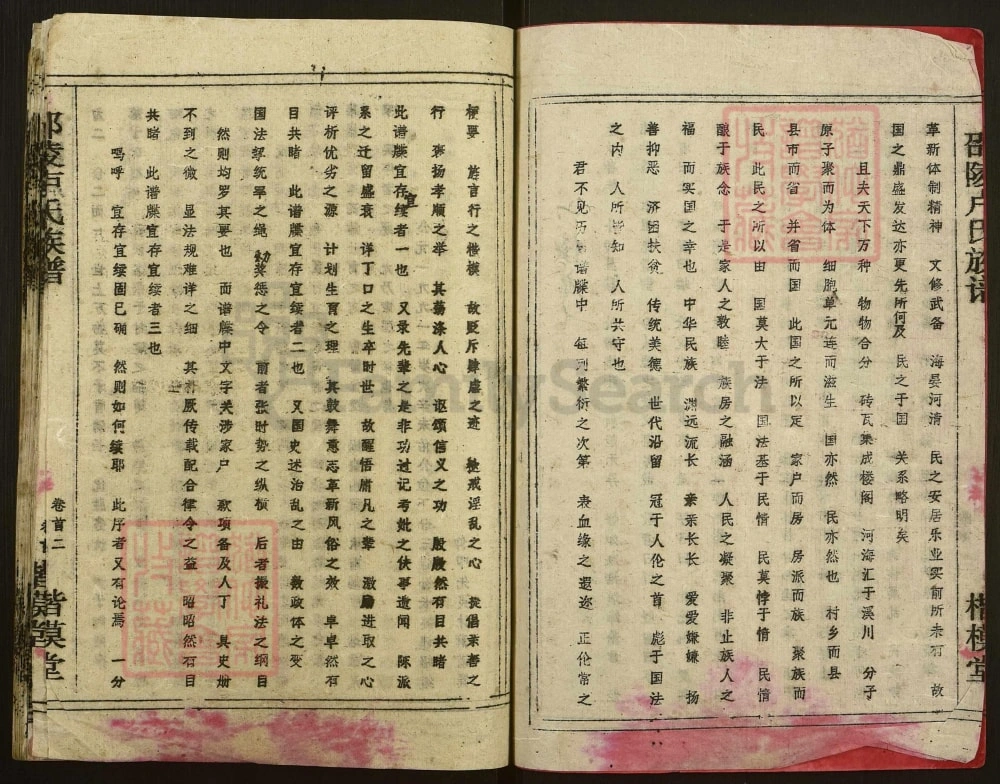 邵陵卢氏族谱
楷模堂
革新体制精神 文修武备 海晏河清 民之安居乐业实前所未有 故
国之鼎盛发达亦更先所何及 民之于国 关系略明矣
且夫天下万种 物物合分 砖瓦集成楼阁 河海汇于溪川 分子
原子聚而为体 细胞单元连而滋生 国亦然 民亦然也 村乡而县
县市而省 并省而国 此国之所以定 家户而房 房派而族 聚族而
民 此民之所以由 国莫大于法 国法基于民情 民莫悖于情 民情
酿于族念 于是家人之敦睦 族房之融涵 人民之凝聚 非止族人之
福 而实国之幸也 中华民族 渊远流长 亲亲长长 爱爱嫌嫌 扬
善抑恶 济困扶贫 传统美德 世代沿留 冠于人伦之首 彪于国法
之内 人所皆知 人所共守也
君不见 谱牒中 列繁衍之次第 表血缘之遐迩 正伦常之
梗要 旌言行之楷模 故贬斥肆虐之迹 惩戒淫乱之心 提倡亲善之
行 弈扬孝顺之举 其荡涤人心 讴颂信义之功 殷殷然有目共睹
此谱牒宜存宜绥者一也 又录先辈之是非功过记考妣之佚事遗闻 陈派
系之迁留盛衰 详丁口之生卒时世 故醒悟庸凡之辈 激励进取之心
评析优劣之源 计划生育之理 其鼓舞意志革新风俗之效 卓卓然有
目共睹 此谱牒宜存宜绥者二也 又国史述治乱之由 敷政体之变
国法绥统率之绳 勅奖惩之令 前者张时势之纵横 后者振礼法之纲目
然则均罗其要也 而谱牒中文字关涉家户 款项备及人丁 具史册
不到之微 显法规难详之细 其补厥传载配合律令之益 昭昭然有目
共睹 此谱牒宜存宜绥者三也
呜呼 宜存宜绥固已确 然则如何绥耶 此序者又有论焉 一分
卷首二
邵陵卢氏族谱
楷模堂
FamilySearch